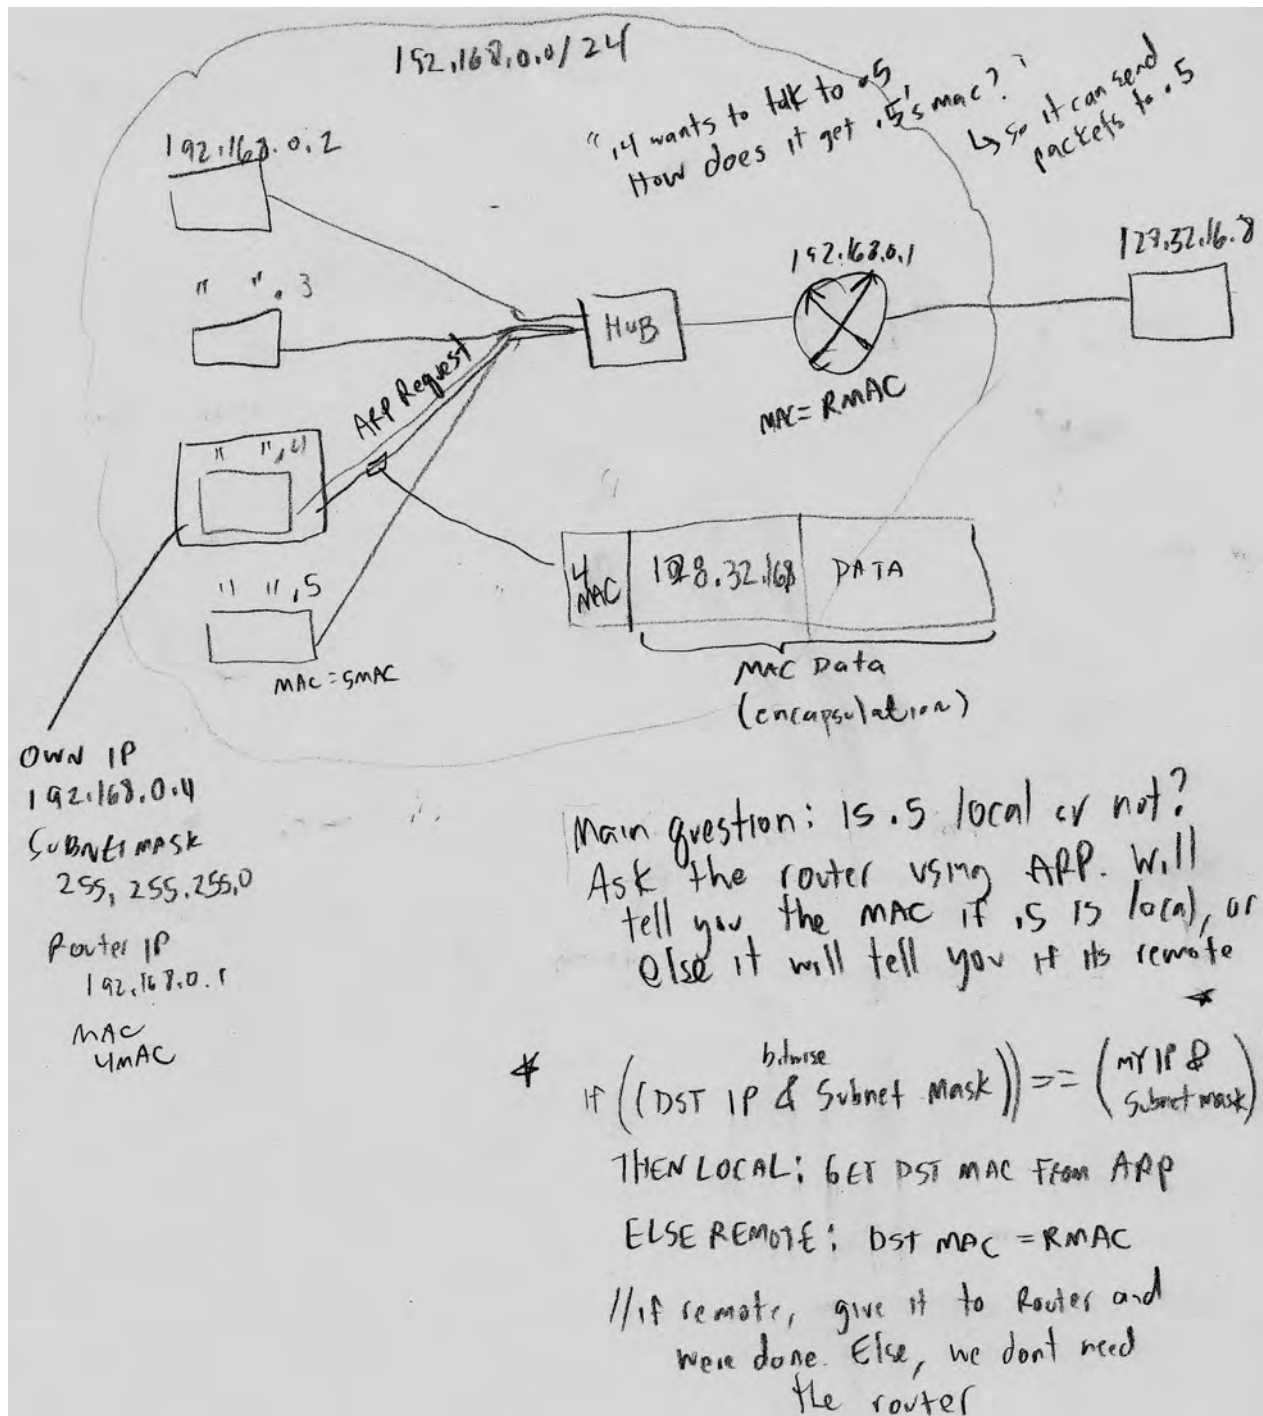 192.168.0.0/24
".4 wants to talk to .5
How does it get .5's mac?"
↳ so it can send
packets to .5
192.168.0.2
" ".3
HUB
192.168.0.1
MAC = RMAC
128.32.16.8
ARP Request
" ".4
" ".5
MAC = 5MAC
4
MAC
128.32.168
DATA
MAC Data
(encapsulation)
OWN IP
192.168.0.4
SUBNET MASK
255.255.255.0
Router IP
192.168.0.1
MAC
4MAC
Main question: is .5 local or not?
Ask the router using ARP. Will
tell you the MAC if .5 is local, or
else it will tell you if its remote
*
* if ((DST IP & Subnet Mask)) == (MY IP &
bitwise
Subnet mask)
THEN LOCAL: GET DST MAC From ARP
ELSE REMOTE: DST MAC = RMAC
//if remote, give it to Router and
were done. Else, we dont need
the router